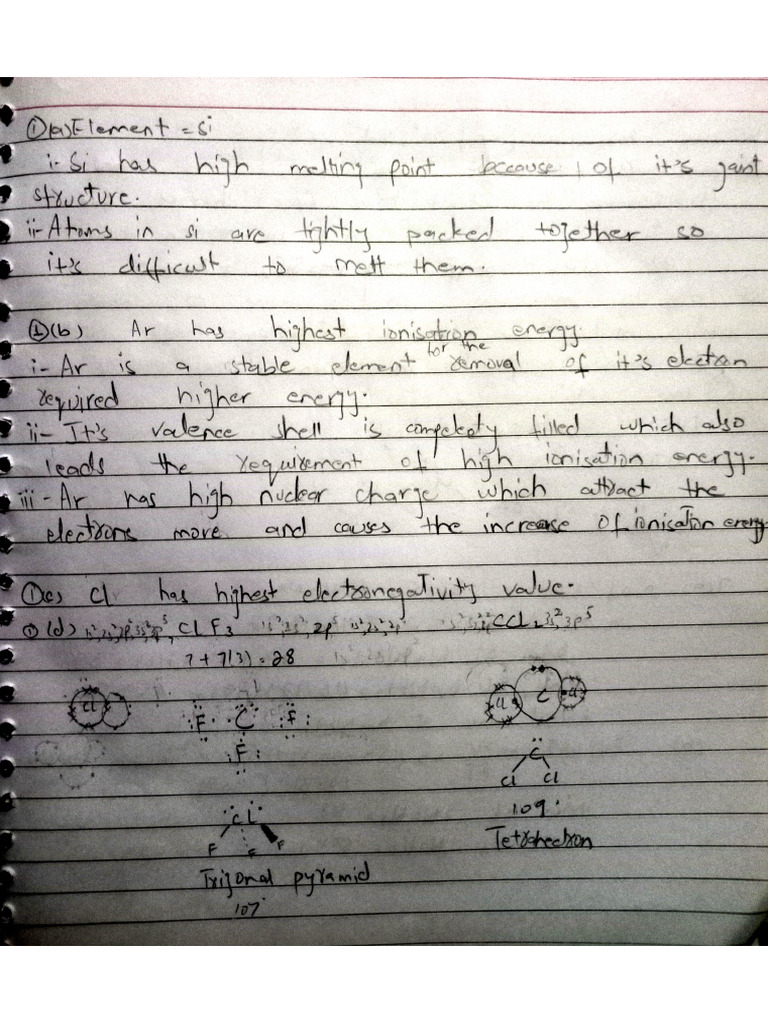 ①(a) Element = Si
i- Si has high melting point because of it's gaint
structure.
ii- Atoms in si are tightly packed together so
it's difficult to mett them.
①(b) Ar has highest ionisation energy.
i- Ar is a stable element for the removal of it's electron
required higher energy.
ii- It's valence shell is completely filled which also
leads the requirement of high ionisation energy.
iii- Ar has high nuclear charge which attract the
electrons more and causes the increase of ionisation energy.
①(c) Cl has highest electronegativity value.
①(d) ClF3 CCl2
7+7(3)=28
Cl Cl C Cl
F C F
F C
Cl Cl
109°
Cl Tetrahedron
F F F
Trigonal pyramid
107°